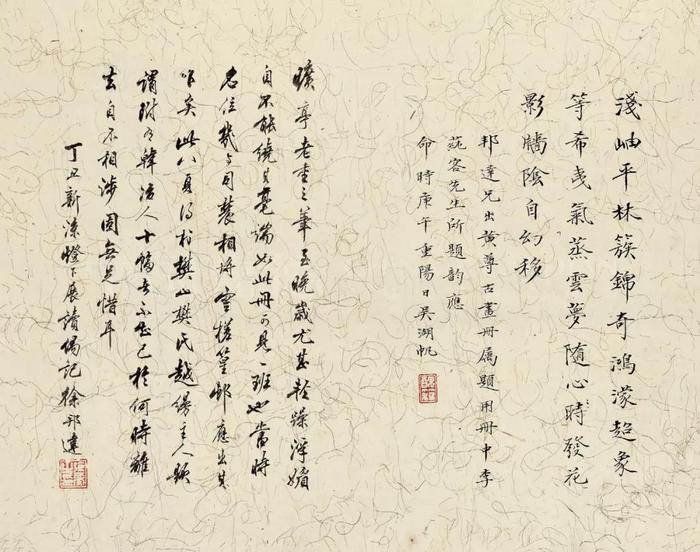 淺岫平林簇錦奇鴻濛超象
等希夷氣蒸雲夢隨心時發花
影牆陰自幻移
邦達兄出黃尊古畫冊屬題用冊中李
蒓客先生所題韵應
命時庚午重陽日吳湖帆
曠亭老查之筆至晚歲尤甚輕躁浮媚
自不能繞其毫端如此冊可見一班也當時
名位幾与司農相將雲槎篁邨應出其
此八頁得於樊山樊氏越縵主人題
謂附有韓冶人十幅者不知已於何時離
去自不相涉固無足惜耳
丁丑新涼燈下展讀偶記徐邦達